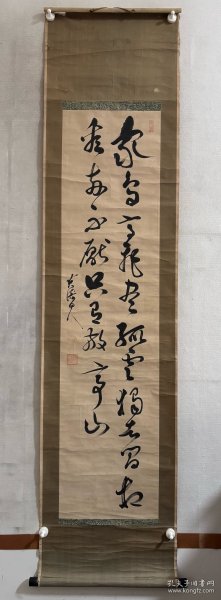 衆鳥高飛盡孤雲獨去閒相
看兩不厭只有敬亭山
孔夫子旧书网
www.kongfz.com